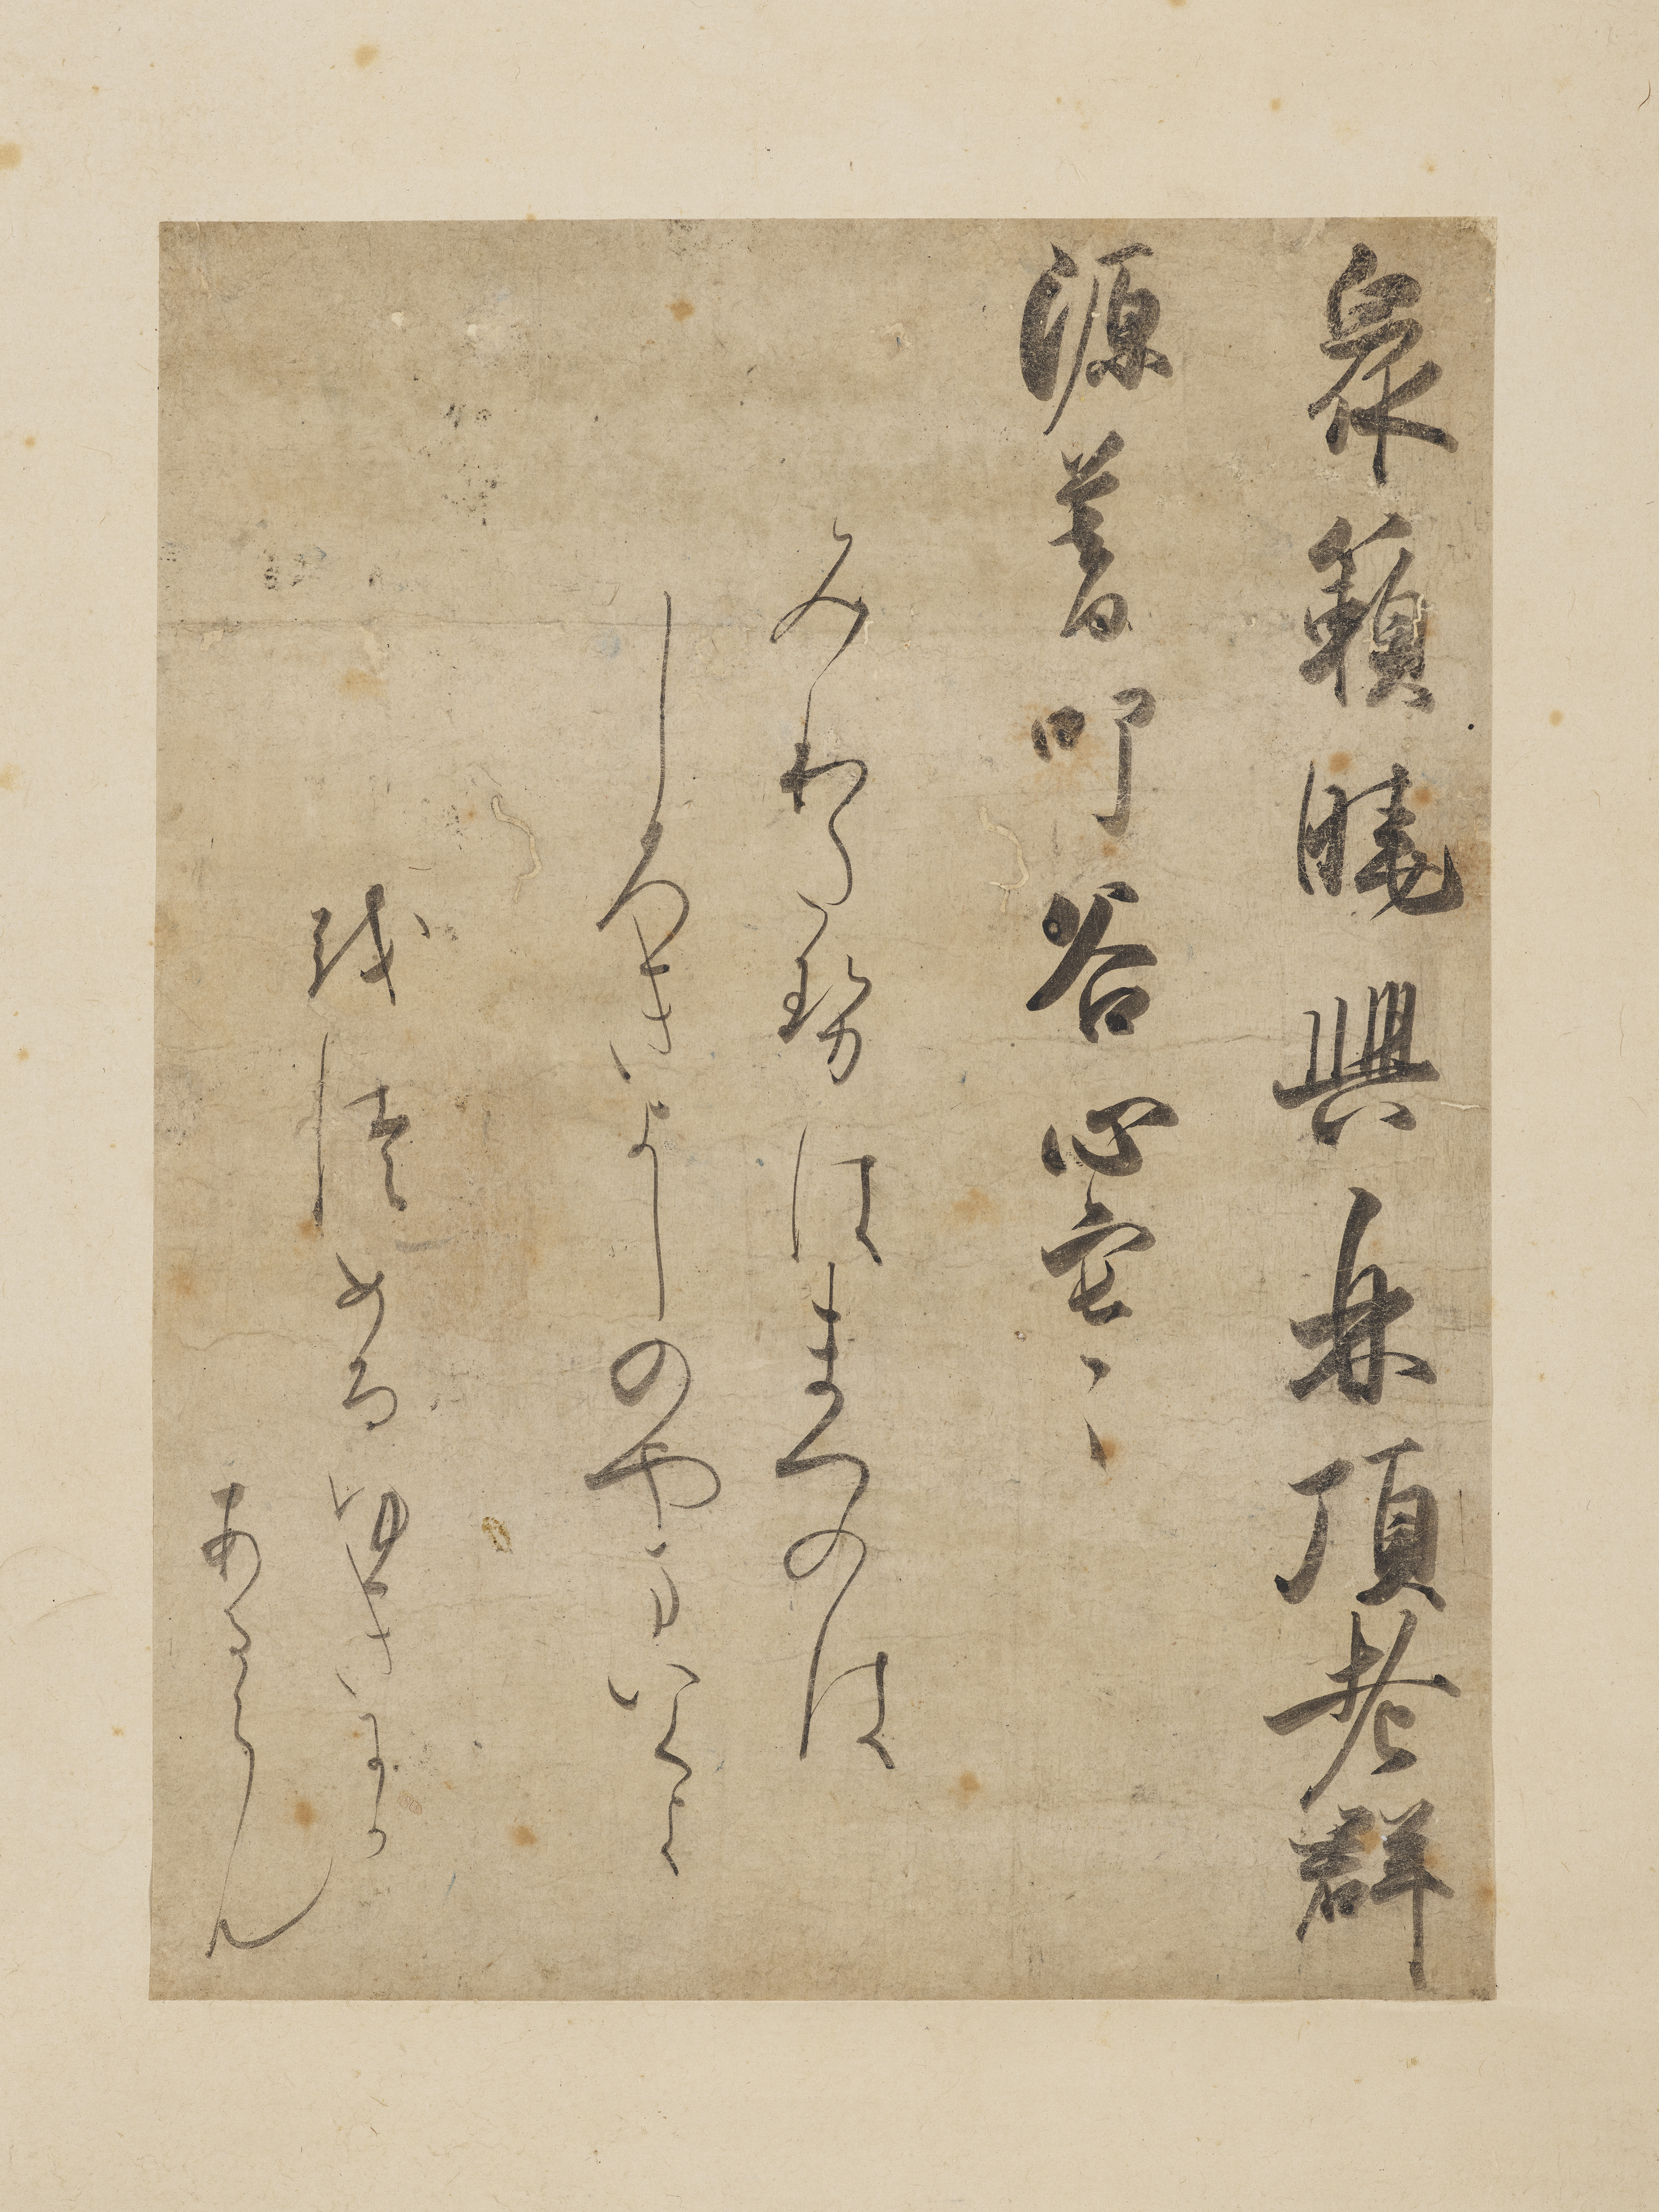 衆籟暁興林頂老群
源暮叩谷心寒
みわたせはまつのは
しろきよしのやまいくよ
をつめるゆきにか
あるらん